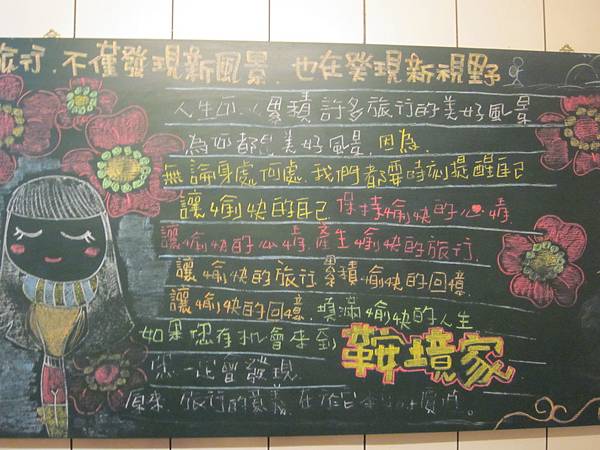 旅行，不僅發現新風景，也在發現新視野
人生可以累積許多旅行的美好風景
為何都是美好風景，因為，
無論身處何處，我們都要時刻提醒自己
讓愉快的自己，保持愉快的心情，
讓愉快的心情，產生愉快的旅行，
讓愉快的旅行，累積愉快的回憶，
讓愉快的回憶，填滿愉快的人生
如果您有機會來到 鞍境家
您一定會發現
原來，旅行的意義，在